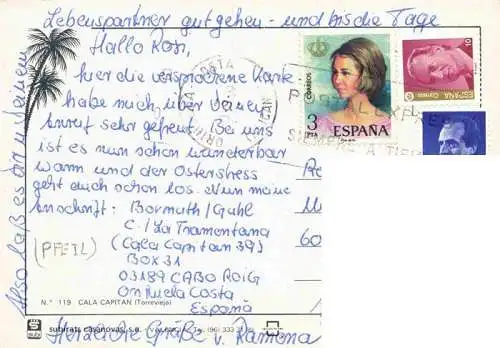 Lebenspartner gut gehen - und bis die Tage
Hallo Rosi,
hier die versprochene Karte
habe mich über deinen
Anruf sehr gefreut. Bei uns
ist es nun schon wunderbar
warm und der Osterstress
geht auch schon los. Nun meine
Anschrift: Bormuth/Gahl
C./La Tramontana
(Cala Capitan 39)
BOX 31
03189 CABO ROIG
Orihuela Costa
Espania
(PFEIL)
Also laß es dir u. deinem
Herzliche Grüße v. Ramona
N.º 119 CALA CAPITAN (Torrevieja)
subirats casanovas, s.a. - VALENCIA - Tel. (96) 333
CORREOS
3
PTA
ESPAÑA
10
ESPAÑA
Correos
POSTAL EXPRES
SIEMPRE A TIEM
COSTA
60